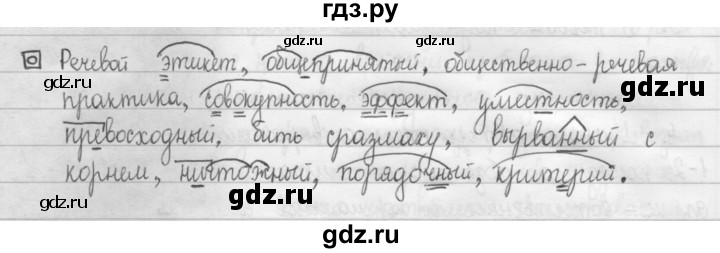 гдз.ру
gdz.ru gdz.ru
Речевой этикет, общепринятый, общественно-речевая
практика, совокупность, эффект, уместность,
gdz.ru gdz.ru
превосходный, бить сразмаху, вырванный с
корнем, ничтожный, порядочный, критерий.
gdz.ru gdz.ru
gdz.ru